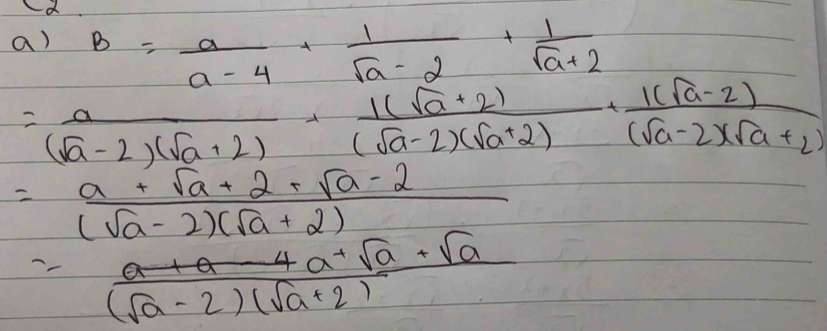 C2
a) B = a/(a - 4) + 1/(√a - 2) + 1/(√a + 2)
= a/((√a - 2)(√a + 2)) + 1(√a + 2)/((√a - 2)(√a + 2)) + 1(√a - 2)/((√a - 2)(√a + 2))
= (a + √a + 2 + √a - 2)/((√a - 2)(√a + 2))
= (~~a + a - 4~~ a + √a + √a)/((√a - 2)(√a + 2))